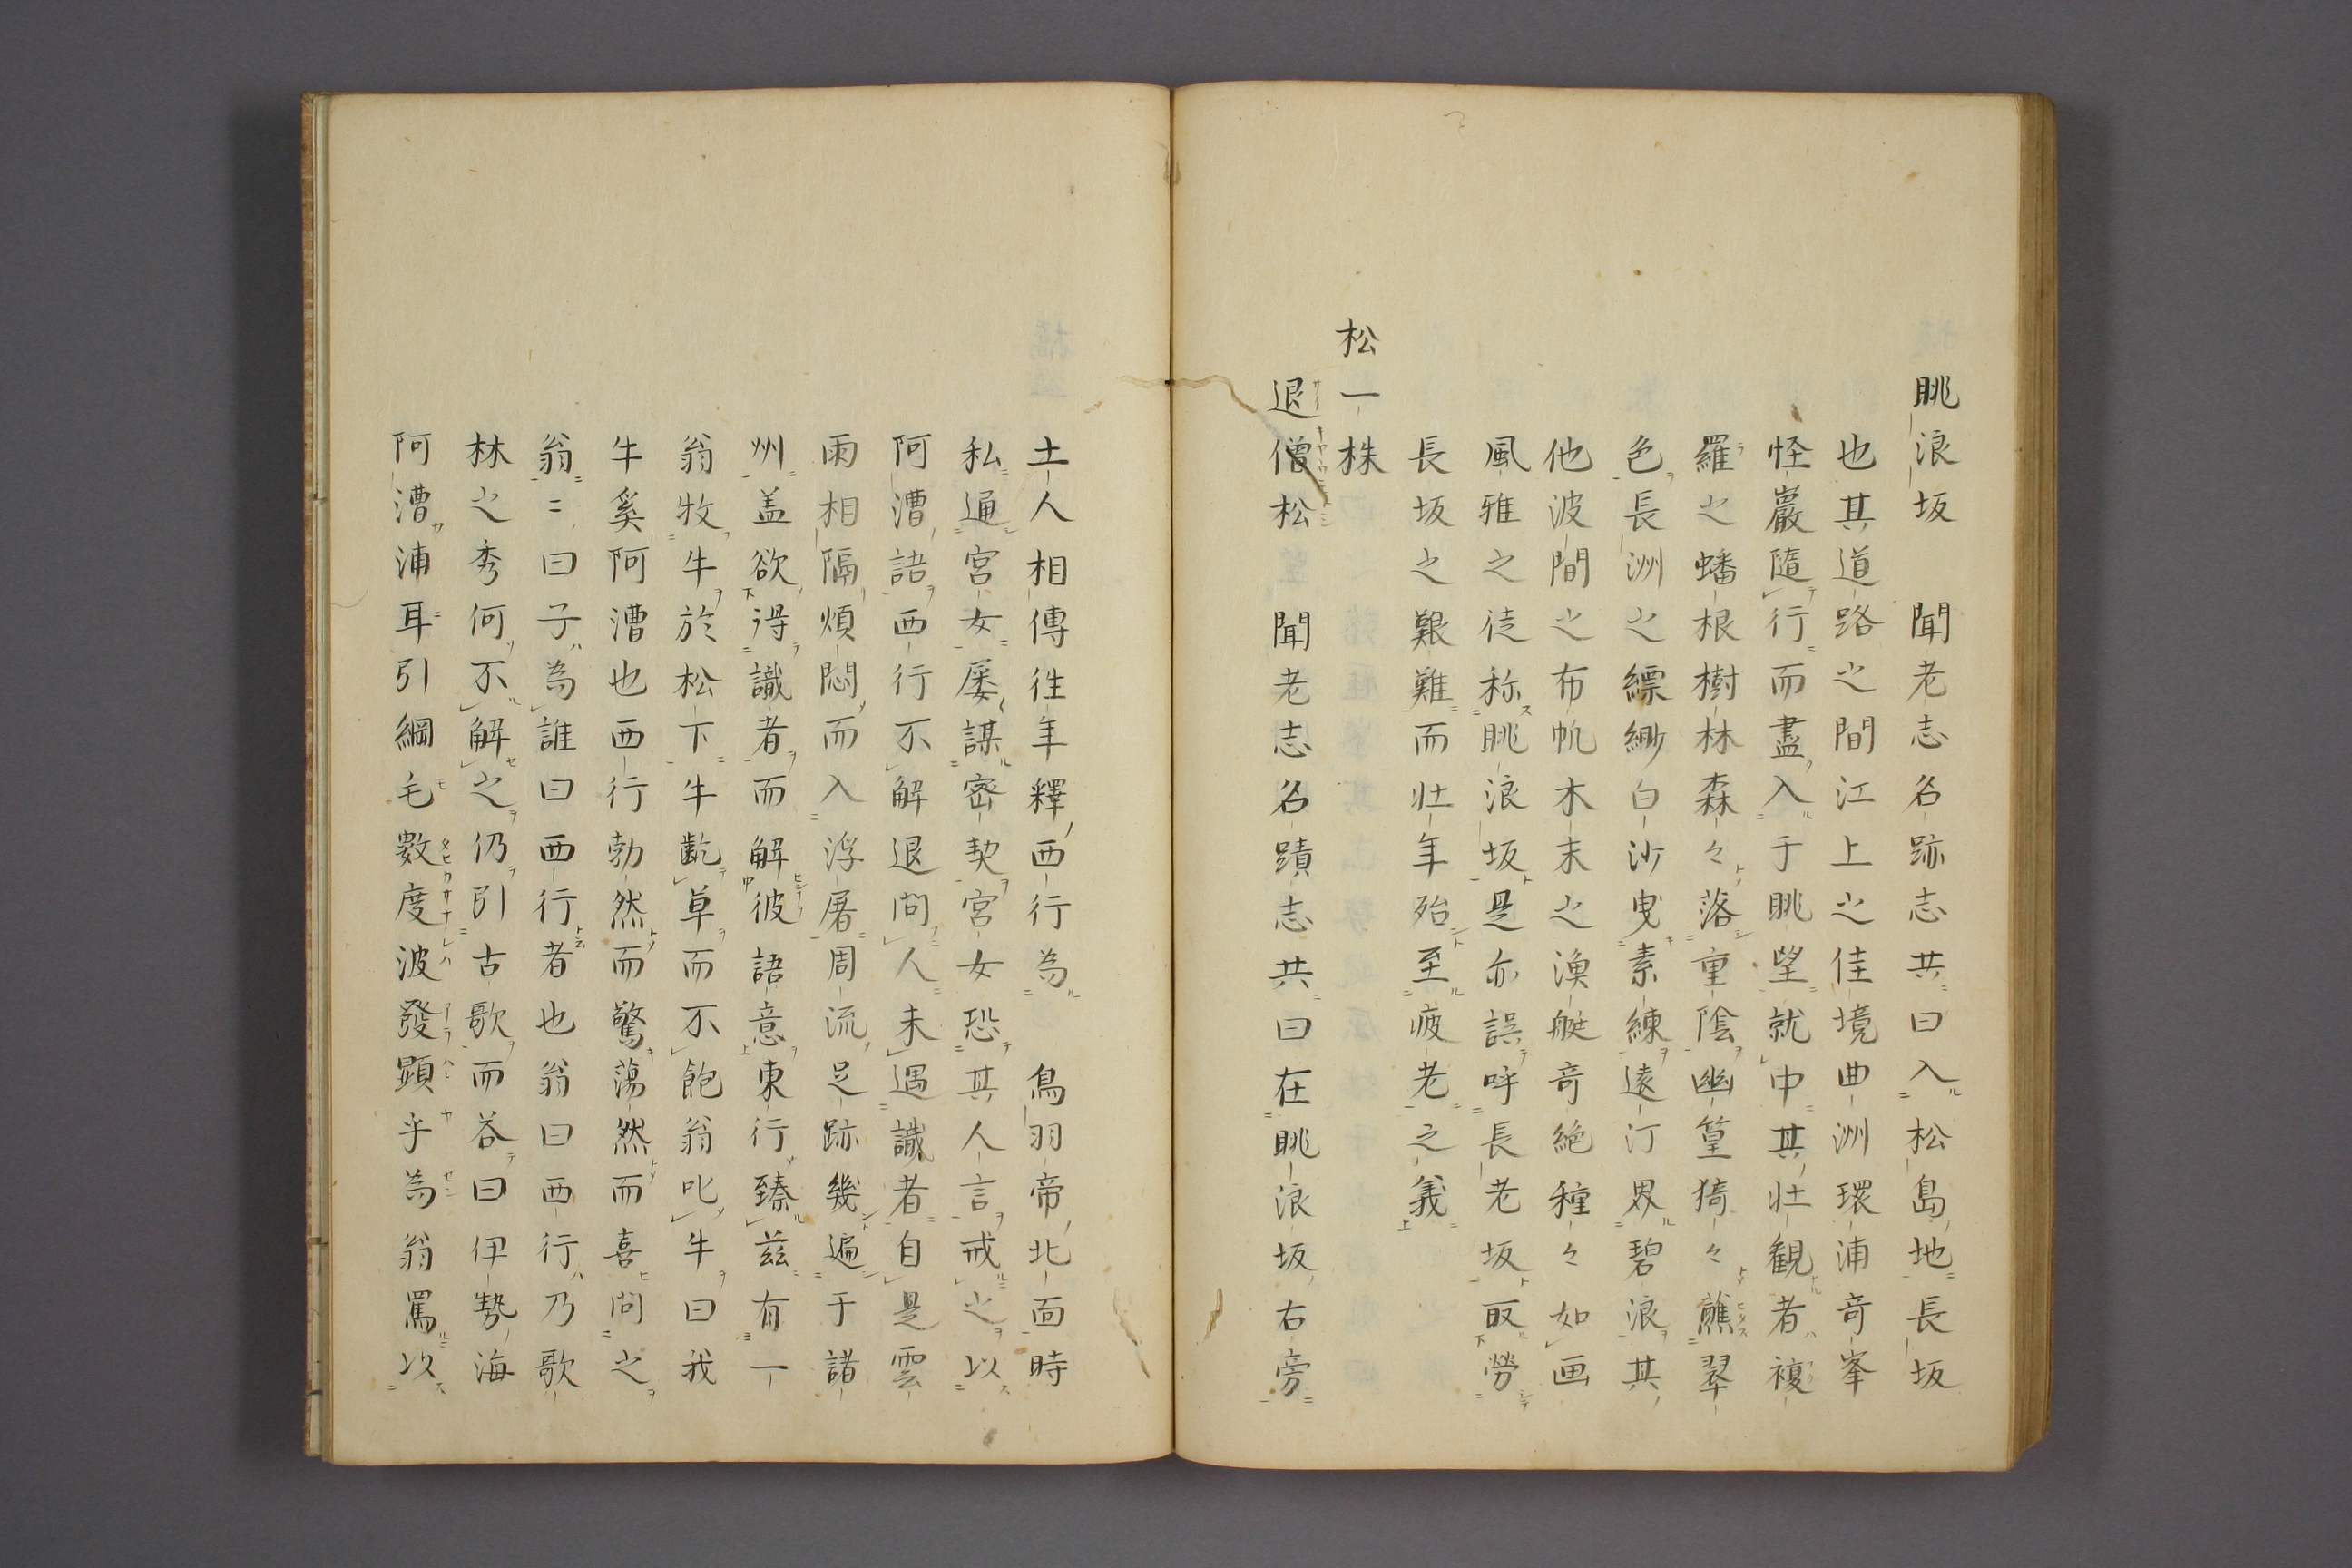 眺浪坂　聞老志名跡志共曰入松島地長坂
也其道路之間江上之佳境曲洲環浦奇峯
怪巖隨行而盡入于眺望就中其壮観者複
羅之蟠根樹林森々落重陰幽篁猗々蘸翠
色長洲之縹緲白沙曳素練遠汀界碧浪其
他波間之布帆木末之漁艇奇絶種々如画
風雅之徒称眺浪坂是亦誤呼長老坂取勞
長坂之艱難而壮年殆至疲老之義
松一株
退僧松　聞老志名蹟志共曰在眺浪坂右旁
土人相傳往年釋西行為　鳥羽帝北面時
私通宮女屡謀密契宮女恐其人言戒之以
阿漕語西行不解退問人未遇識者自是雲
雨相隔煩悶而入浮屠周流足跡幾遍于諸
州盖欲得識者而解彼語意東行臻茲有一
翁牧牛於松下牛齕草而不飽翁叱牛曰我
牛奚阿漕也西行勃然而驚蕩然而喜問之
翁二曰子為誰曰西行者也翁曰西行乃歌
林之秀何不解之仍引古歌而荅曰伊勢海
阿漕浦耳引綱毛數度波發顕乎為翁罵以